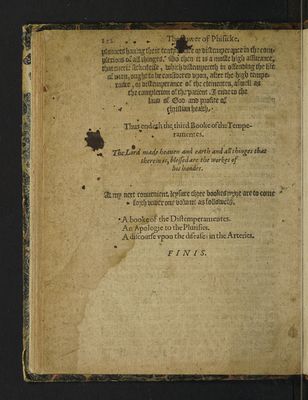 The Power of Phisicke,
planets having their
plexions of all thinges. So then it is a moste high assurance,
that meere , which distempereth in offending the life
of man, ought to be considered upon, after the high tempe-
rature, or distemperance of the elementes, as well as
the complexion of the pacient. I ende to the
laud of God and profite of
christian health.
Thus endeth the third Booke of the Tempe-
ramentes.
The Lord made heaven and earth and all thinges that
therein is, blessed are the workes of
his handes.
At my next convenient leysure three bookes more are to come
forth under one volume as followeth.
A booke of the Distemperatures.
An Apologie to the Plurisies.
A discourse vpon the diseases in the Arteries.
FINIS.